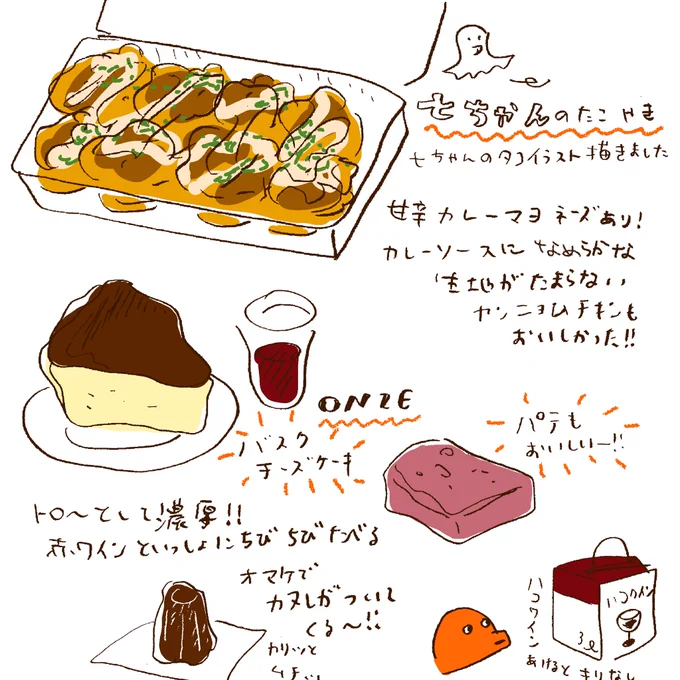 七ちゃんのたこやき
七ちゃんのタコイラスト描きました
甘辛カレーマヨネーズあり!
カレーソースになめらかな
生地がたまらない
ヤンニョムチキンも
おいしかった!!
ONZE
バスク
チーズケーキ
パテも
おいしいー!!
トロ〜として濃厚!!
赤ワインといっしょにちびちびたべる
オマケで
カヌレがついて
くる〜!!
カリッと
ハコワイン
ハコワイン
3ℓ
あけると きりなし